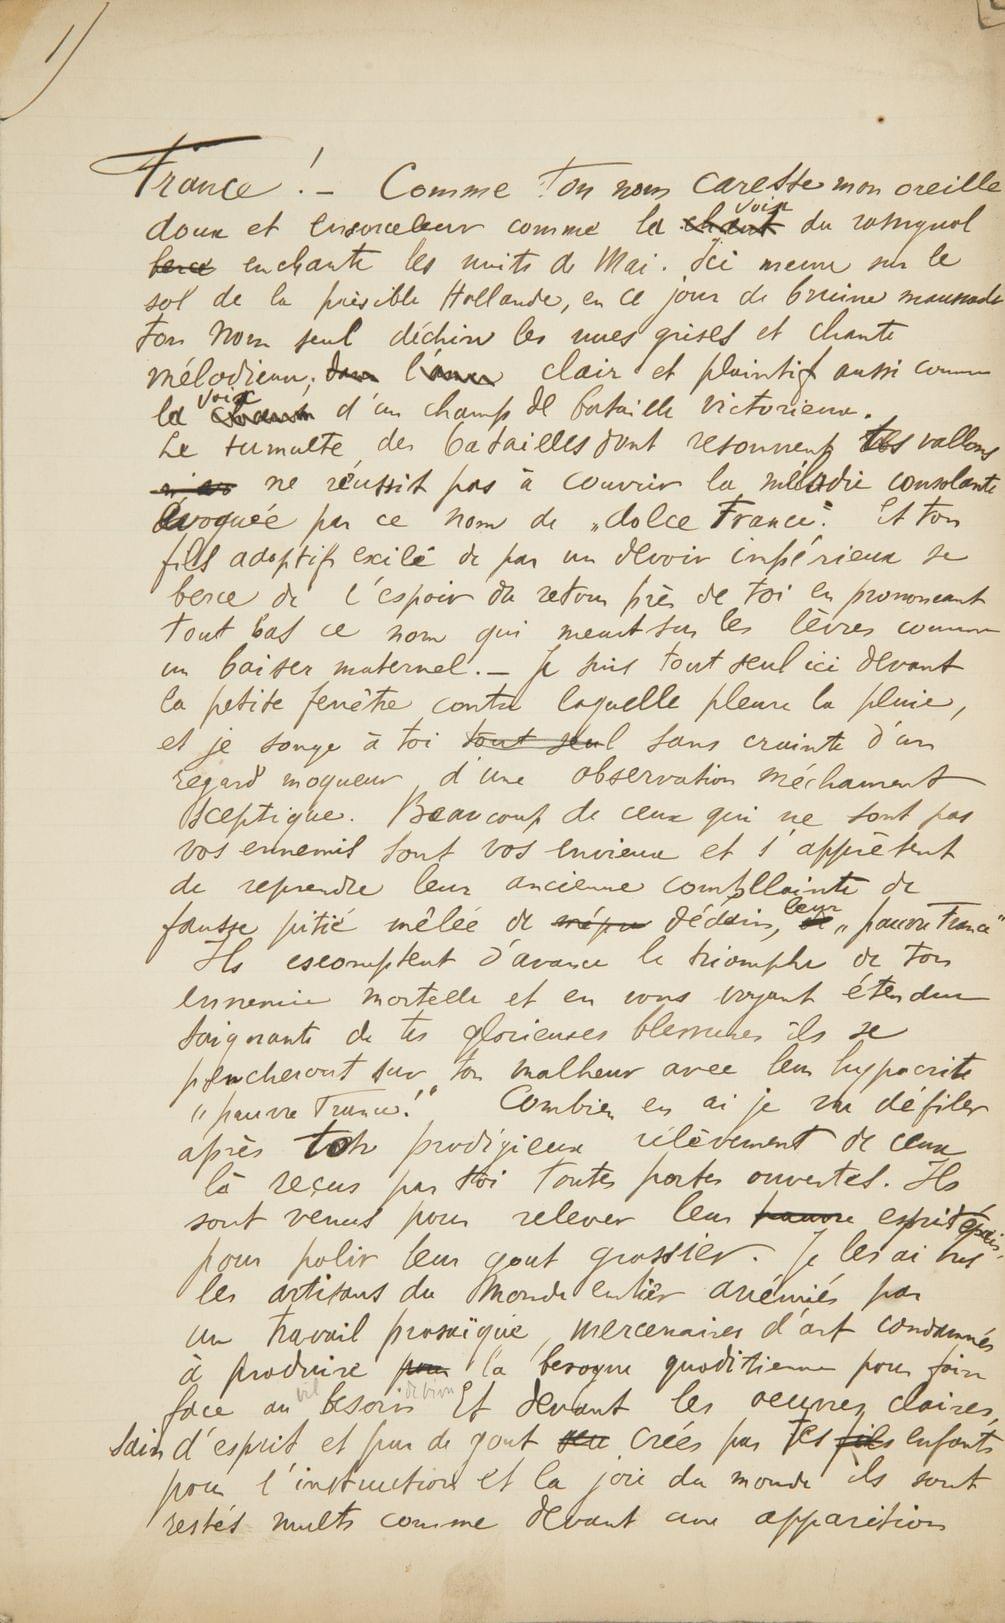 1)
France! — Comme ton nom caresse mon oreille
doux et ensorceleur comme la voix du rossignol
berce enchante les nuits de Mai. Ici meme sur le
sol de la paisible Hollande, en ce jour de bruine maussade
ton nom seul déchire les nues grises et chante
mélodieux, dans clair et plaintif aussi comme
la voix d'un champ de bataille victorieux.
Le tumulte des batailles dont resonnent tes vallons
ne réussit pas à couvrir la mélodie consolante
évoquée par ce nom de „dolce France". Et ton
fils adoptif exilé de par un devoir impérieux se
berce de l'espoir du retour près de toi en prononcant
tout bas ce nom qui meurt sur les lèvres comme
un baiser maternel. — Je suis tout seul ici devant
la petite fenêtre contre laquelle pleure la pluie,
et je songe à toi tout seul sans crainte d'un
regard moqueur, d'une observation méchament
sceptique. Beaucoup de ceux qui ne sont pas
vos ennemis sont vos envieux et s'apprêtent
de reprendre leur ancienne complainte de
fausse pitié mêlée de mépris dédain, leur „pauvre France"
Ils escomptent d'avance le triomphe de ton
ennemie mortelle et en vous voyant étendue
saignante de tes glorieuses blessures ils se
pencheront sur ton malheur avec leur hypocrite
„pauvre France!" Combien en ai je vu défiler
après ton prodigieux rélèvement de ceux
là reçus par toi toutes portes ouvertes. Ils
sont venus pour relever leur pauvre esprit épais,
pour polir leur gout grossier. Je les ai vus
les artisans du monde entier anémiés par
un travail prosaïque, mercenaires d'art condamnés
à produire pour la besogne quoditienne pour faire
face au vil besoin Et devant les oeuvres claires,
sain d'esprit et pur de gout créés par tes fils enfants
pour l'instruction et la joie du monde ils sont
restés muets comme devant une apparition